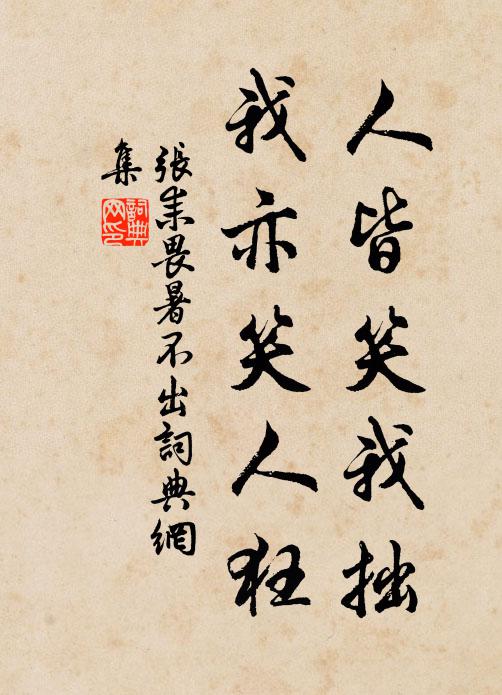 人皆笑我拙
我亦笑人狂
張耒畏暑不出詞典網
集
詞典網印